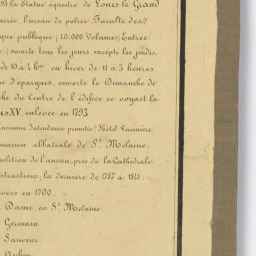 la Statue équestre de Louis le Grand
bureau de police Faculté des
que publique (10.000 Volumes) Entrée
ouverte tous les jours excepté les jeudis,
de 10 à 4 hres en hiver de 11 à 3 heures
d'épargnes, ouverte le Dimanche de
du Centre de l'édifice se voyait la
is XV, enlevée en 1793
Intendance primitiv. Hôtel
maison abbatiale de St. Melaine,
olition de l'ancien, près de la Cathédrale
la dernière de 1787 à 1811.
vers en 1700
Dame, en St. Melaine
Germain
Sauveur
Aubin